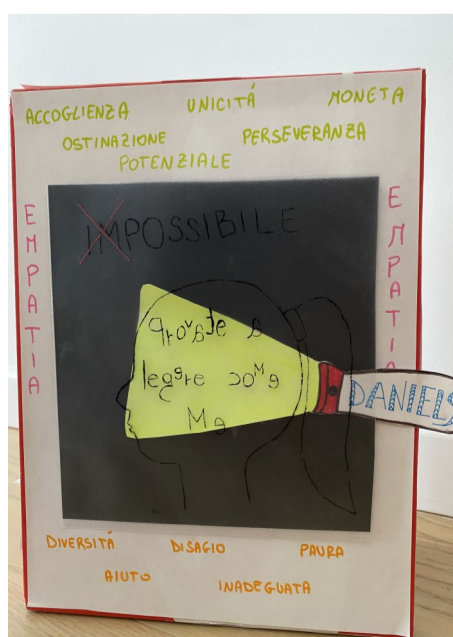 ACCOGLIENZA UNICITÁ MONETA
OSTINAZIONE PERSEVERANZA
POTENZIALE
EMPATIA
EMPATIA
IMPOSSIBILE
provate a
leggere come
me
DANIELS
DIVERSITÁ DISAGIO PAURA
AIUTO INADEGUATA